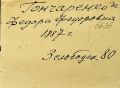 Гончаренко
Федора Федоровича
1887 г.
Зелободка 80